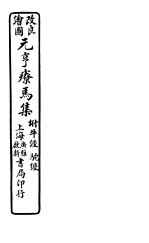 改良
繪圖
元亨療馬集
坿牛經駝經
上海廣雅啟新書局印行